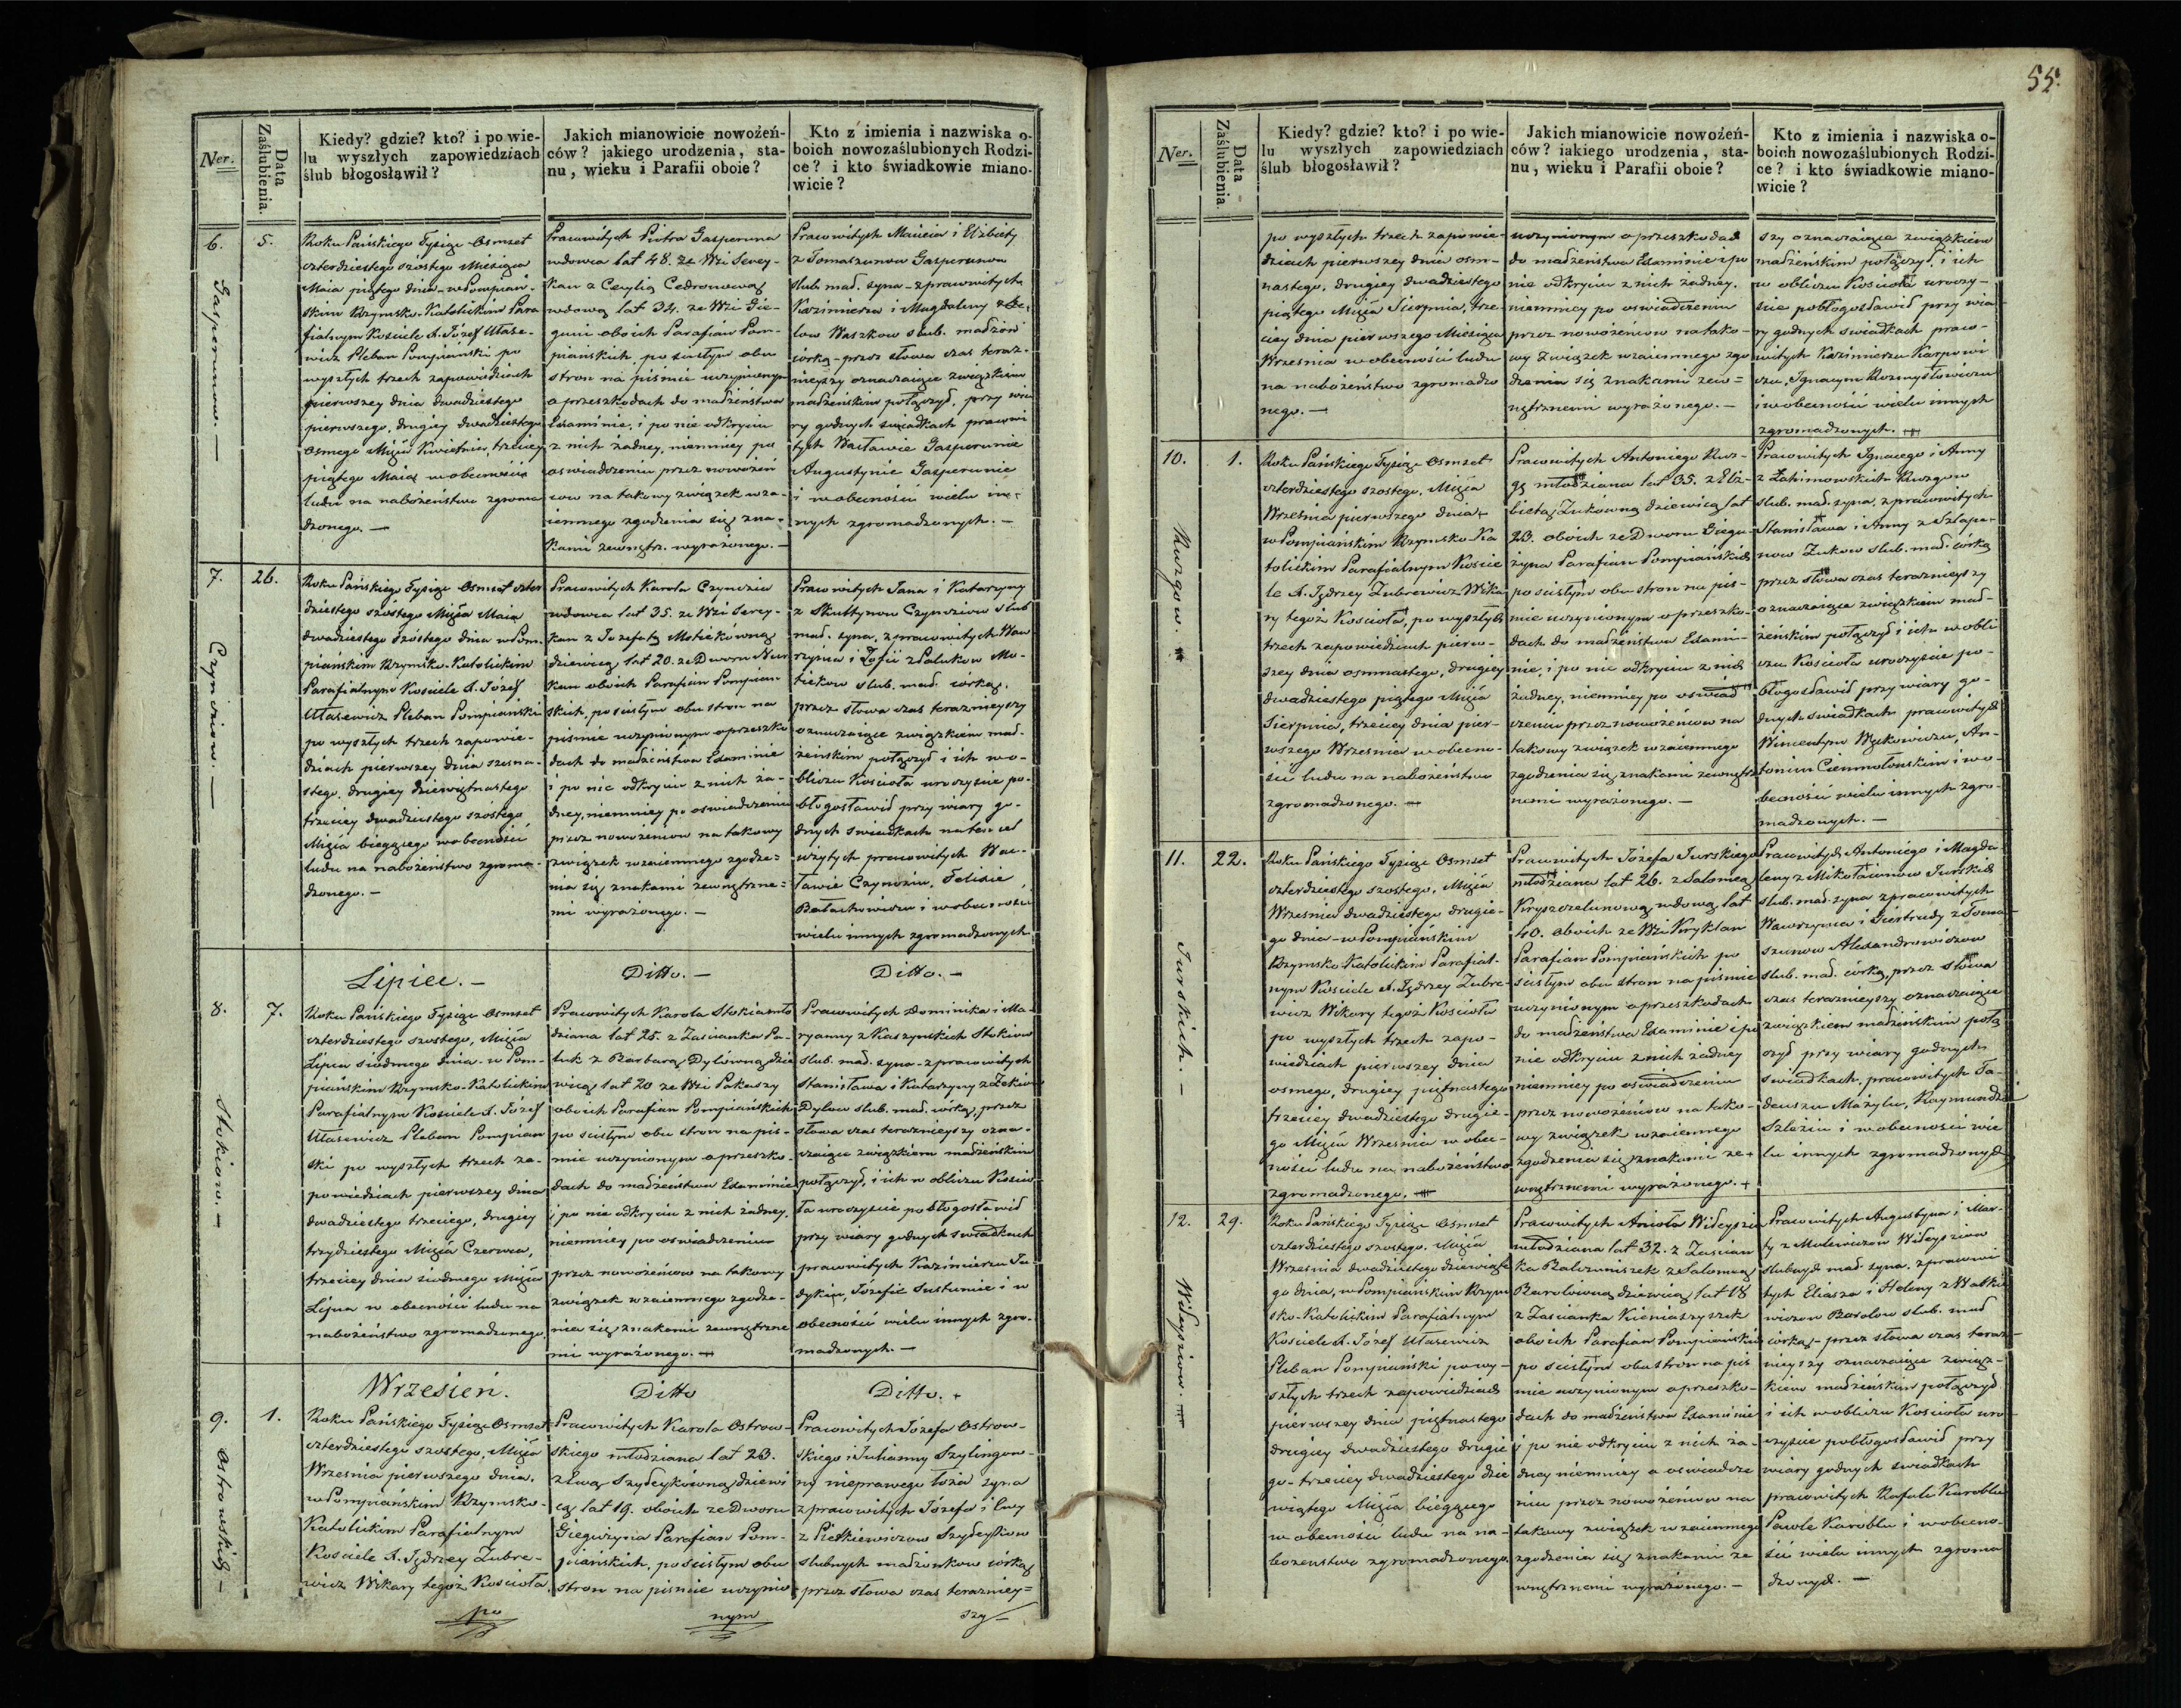 Ner.
Data Zaślubienia.
Kiedy? gdzie? kto? i po wie-
lu wyszłych zapowiedziach
ślub błogosławił?
Jakich mianowicie nowożeń-
ców? jakiego urodzenia, sta-
nu, wieku i Parafii oboie?
Kto z imienia i nazwiska o-
boich nowozaślubionych Rodzi-
ce? i kto świadkowie miano-
wicie?
6.
Gasperunow. —
5.
Roku Pańskiego Tysiąc Osmset
czterdziestego szóstego Miesiąca
Maia piątego dnia - w Pompiań-
skim Rzymsko-Katolickim Para
fialnym Kościele X. Józef Utase-
wicz Pleban Pompiański po
wyszłych trzech zapowiedziach
pierwszey dnia dwadziestego
pierwszego, drugiey dwadziestego
osmego Msca Kwietnia, trzeciey
piątego Maia w obecności
ludu na nabożeństwo zgroma
dzonego. —
Pracowitych Piotra Gasperuna
wdowca lat 48. ze Wsi Serey-
kan z Cecylią Cedronową
wdową lat 34. ze Wsi Gie-
guni oboich Parafian Pom-
piańskich po ścisłym obu
stron na piśmie uczynionym
o przeszkodach do małżeństwa
Examinie, i po nie odkryciu
z nich żadney, niemniey po
oświadczeniu przez nowożeń
ców na takowy związek wza-
iemnego zgodzenia się zna-
kami zewnętrz. wyrażonego. —
Pracowitych Macieia i Elżbiety
z Tomaszunow Gasperunow
ślub. mał. syna - z pracowitych
Kazimierza i Magdaleny
Waszkow ślub. małżon
córką - przez słowa czas teraz-
nieyszy oznaczaiące związkiem
małżeńskim połączył, przy wia
ry godnych świadkach pracowi
tych Wacławie Gasperunie
Augustynie Gasperunie
i w obecności wielu in-
nych zgromadzonych. —
7.
Czyndziow. —
26.
Roku Pańskiego Tysiąc Osmset czter
dziestego szóstego Msca Maia
dwadziestego szóstego dnia w Pom-
piańskim Rzymsko-Katolickim
Parafialnym Kościele X. Józef
Utasewicz Pleban Pompiański
po wyszłych trzech zapowie-
dziach pierwszey dnia szesna-
stego, drugiey dziewiętnastego
trzeciey dwadziestego szóstego
Msca bieżącego w obecności
ludu na nabożeństwo zgroma-
dzonego. —
Pracowitych Karola Czyndzia
wdowca lat 35. ze Wsi Serey-
kan z Jozefatą Motiekówną
dziewicą lat 20. ze Dworu Nur
kan oboich Parafian Pompiań
skich, po ścisłym obu stron na
piśmie uczynionym o przeszko
dach do małżeństwa Examinie
i po nie odkryciu z nich ża-
dney, niemniey po oświadczeniu
przez nowożeńcow na takowy
związek wzaiemnego zgodze-
nia się znakami zewnętrzne-
mi wyrażonego. —
Pracowitych Jana i Katarzyny
z Skuttynow Czyndziow ślub
mał. syna, z pracowitych Waw
rzyńca i Zofii z Palukow Mo-
tiekow ślub. mał. córką,
przez słowa czas teraznieyszy
oznaczaiące związkiem mał-
żeńskim połączył i ich w o-
bliczu Kościoła uroczyście po-
błogosławił przy wiary go-
dnych świadkach na ten cel
użytych pracowitych Wac-
ławie Czyndziu, Felixie
Bałachowiczu i w obecności
wielu innych zgromadzonych
Lipiec. —
Ditto. —
Ditto. —
8.
Stokiow. —
7.
Roku Pańskiego Tysiąc Osmset
czterdziestego szostego, Msca
Lipca siódmego dnia - w Pom-
piańskim Rzymsko-Katolickim
Parafialnym Kościele X. Józef
Utasewicz Pleban Pompiań
ski po wyszłych trzech za-
powiedziach pierwszey dnia
dwadziestego trzeciego, drugiey
trzydziestego Msca Czerwca,
trzeciey dnia siódmego Msca
Lipca w obecności ludu na
nabożeństwo zgromadzonego.
Pracowitych Karola Stokia mło
dziana lat 25. z Zaścianka Pa-
luk z Barbarą Dylówną dzie
wicą lat 20 ze Wsi Pakuszy
oboich Parafian Pompiańskich
po ścisłym obu stron na piś-
mie uczynionym o przeszko-
dach do małżeństwa Examinie
i po nie odkryciu z nich żadney,
niemniey po oświadczeniu
przez nowożeńcow na takowy
związek wzaiemnego zgodze-
nia się znakami zewnętrzne
mi wyrażonego. —
Pracowitych Dominika i Ma-
ryanny z Kaszyńskich Stokiow
ślub. mał. syna - z pracowitych
Stanisława i Katarzyny z Żekiow
Dylow ślub. mał. córką, przez
słowa czas teraznieyszy ozna-
czaiące związkiem małżeńskim
połączył, i ich w obliczu Kościo
ła uroczyście pobłogosławił
przy wiary godnych świadkach
pracowitych Kazimierzu Ja
dykiu, Józefie Sustumie i w
obecności wielu innych zgro-
madzonych. —
Wrzesień.
Ditto
Ditto.
9.
Ostrowskich —
1.
Roku Pańskiego Tysiąc Osmset
czterdziestego szostego, Msca
Wrzesnia pierwszego dnia,
w Pompiańskim Rzymsko-
Katolickim Parafialnym
Kościele X. Jędrzey Zubre-
wicz Wikary tegoż Kościoła
po
Pracowitych Karola Ostrow-
skiego młodziana lat 23.
z Ewą Szydeykówną dziewi
cą lat 19. oboich ze Dworu
Gieguzyna Parafian Pom-
piańskich, po ścisłym obu
stron na piśmie uczynio-
nym
Pracowitych Józefa Ostrow-
skiego i Julianny Szylingow-
ny nieprawego łoża syna
z pracowitych Józefa i Ewy
z Pietkiewiczow Szydeykow
ślubnych małżonkow córką
przez słowa czas terazniey=
szy
55.
Ner.
Data Zaślubienia.
Kiedy? gdzie? kto? i po wie-
lu wyszłych zapowiedziach
ślub błogosławił?
Jakich mianowicie nowożeń-
ców? iakiego urodzenia, sta-
nu, wieku i Parafii oboie?
Kto z imienia i nazwiska o-
boich nowozaślubionych Rodzi-
ce? i kto świadkowie miano-
wicie?
po wyszłych trzech zapowie-
dziach pierwszey dnia osm-
nastego, drugiey dwadziestego
piątego Msca Sierpnia, trze
ciey dnia pierwszego Miesiąca
Wrzesnia w obecności ludu
na nabożeństwo zgromadzo
nego. —
uczynionym o przeszkodach
do małżeństwa Examinie i po
nie odkryciu z nich żadney,
niemniey po oświadczeniu
przez nowożeńcow na tako-
wy związek wzaiemnego zgo
dzenia się znakami zew=
nętrznemi wyrażonego. —
szy oznaczaiące związkiem
małżeńskim połączył, i ich
w obliczu Kościoła uroczy-
ście pobłogosławił przy wia
ry godnych świadkach praco-
witych Kazimierzu Karpowi
czu, Ignacym Rozmysłowiczu
i w obecności wielu innych
zgromadzonych.
10.
Ruzgow.
1.
Roku Pańskiego Tysiąc Osmset
czterdziestego szostego, Msca
Wrzesnia pierwszego dnia
w Pompiańskim Rzymsko Ka
tolickim Parafialnym Koscie
le X. Jędrzey Zubrewicz Wika
ry tegoż Kościoła, po wyszłych
trzech zapowiedziach pierw-
szey dnia osmnastego, drugiey
dwadziestego piątego Msca
Sierpnia, trzeciey dnia pier-
wszego Wrzesnia w obecno-
ści ludu na nabożeństwo
zgromadzonego. —
Pracowitych Antoniego Ruz-
gę młodziana lat 35. z Elż-
bietą Zukówną dziewicą lat
23. oboich ze Dworu Giegu-
żyna Parafian Pompiańskich
po ścisłym obu stron na piś-
mie uczynionym o przeszko-
dach do małżeństwa Exami-
nie, i po nie odkryciu z nich
żadney, niemniey po oświad
czeniu przez nowożeńcow na
takowy związek wzaiemnego
zgodzenia się znakami zewnętrz
nemi wyrażonego. —
Pracowitych Ignacego i Anny
z Łahimowskich Ruzgow
ślub. mał. syna, z pracowitych
Stanisława i Anny z Szlapa-
now Zukow ślub. mał. córką
przez słowa czas teraznieyszy
oznaczaiące związkiem mał-
żeńskim połączył i ich w obli
czu Kościoła uroczyście po-
błogosławił przy wiary go-
dnych świadkach pracowitych
Wincentym Wyzkowiczu, An-
tonim Ciemnołońskim i w o-
becności wielu innych zgro-
madzonych. —
11.
Jurskich. —
22.
Roku Pańskiego Tysiąc Osmset
czterdziestego szostego, Msca
Wrzesnia dwadziestego drugie-
go dnia - w Pompiańskim
Rzymsko-Katolickim Parafial-
nym Kościele X. Jędrzey Zubre-
wicz Wikary tegoż Kościoła
po wyszłych trzech zapo-
wiedziach pierwszey dnia
osmego, drugiey piętnastego
trzeciey dwadziestego drugie-
go Msca Wrzesnia w obec-
ności ludu na nabożeństwo
zgromadzonego.
Pracowitych Józefa Jurskiego
młodziana lat 26. z Salomeą
Kryszczelunową wdową lat
40. oboich ze Wsi Kryklan
Parafian Pompiańskich po
ścisłym obu stron na piśmie
uczynionym o przeszkodach
do małżeństwa Examinie i po
nie odkryciu z nich żadney
niemniey po oświadczeniu
przez nowożeńcow na tako-
wy związek wzaiemnego
zgodzenia się znakami ze-
wnętrznemi wyrażonego.
Pracowitych Antoniego i Magda
leny z Mikołaiunow Jurskich
ślub. mał. syna z pracowitych
Wawrzyńca i Giertrudy z Toma-
szunow Alexandrowiczow
ślub. mał. córką, przez słowa
czas teraznieyszy oznaczaiące
związkiem małżeńskim połą
czył przy wiary godnych
świadkach, pracowitych Ta-
deuszu Mażylu, Raymundzie
Szleziu i w obecności wie
lu innych zgromadzonych
12.
Wileysziow.
29.
Roku Pańskiego Tysiąc Osmset
czterdziestego szostego. Msca
Wrzesnia dwadziestego dziewiąte
go dnia, w Pompiańskim Rzym
sko-Katolickim Parafialnym
Kościele X. Józef Utasewicz
Pleban Pompiański po wy-
szłych trzech zapowiedziach
pierwszey dnia piętnastego
drugiey dwadziestego drugie
go - trzeciey dwadziestego dzie
wiątego Msca bieżącego
w obecności ludu na na-
bozenstwo zgromadzonego.
Pracowitych Anioła Wileyszia
młodziana lat 32. z Zaścian
ka Balczuniszek z Salomeą
Barolówną dziewicą lat 18
z Zaścianka Kieniaszyszek
oboich Parafian Pompiańskich
po ścisłym obu stron na piś
mie uczynionym o przeszko-
dach do małżeństwa Examinie
i po nie odkryciu z nich ża-
dney niemniey o oświadcze
niu przez nowożeńcow na
takowy związek wzaiemnego
zgodzenia się znakami ze
wnętrznemi wyrażonego. —
Pracowitych Augustyna i Mar-
ty z Mulewiczow Wileysziow
ślubnych mał. syna, z pracowi
tych Eliasza i Heleny z Watki
wiczow Barolow ślub. mał
córką - przez słowa czas teraz-
nieyszy oznaczaiące związ-
kiem małżeńskim połączył
i ich w obliczu Kościoła uro-
czyście pobłogosławił przy
wiary godnych świadkach
pracowitych Rafale Karoblu
Pawle Karoblu i w obecno-
ści wielu innych zgroma
dzonych. —